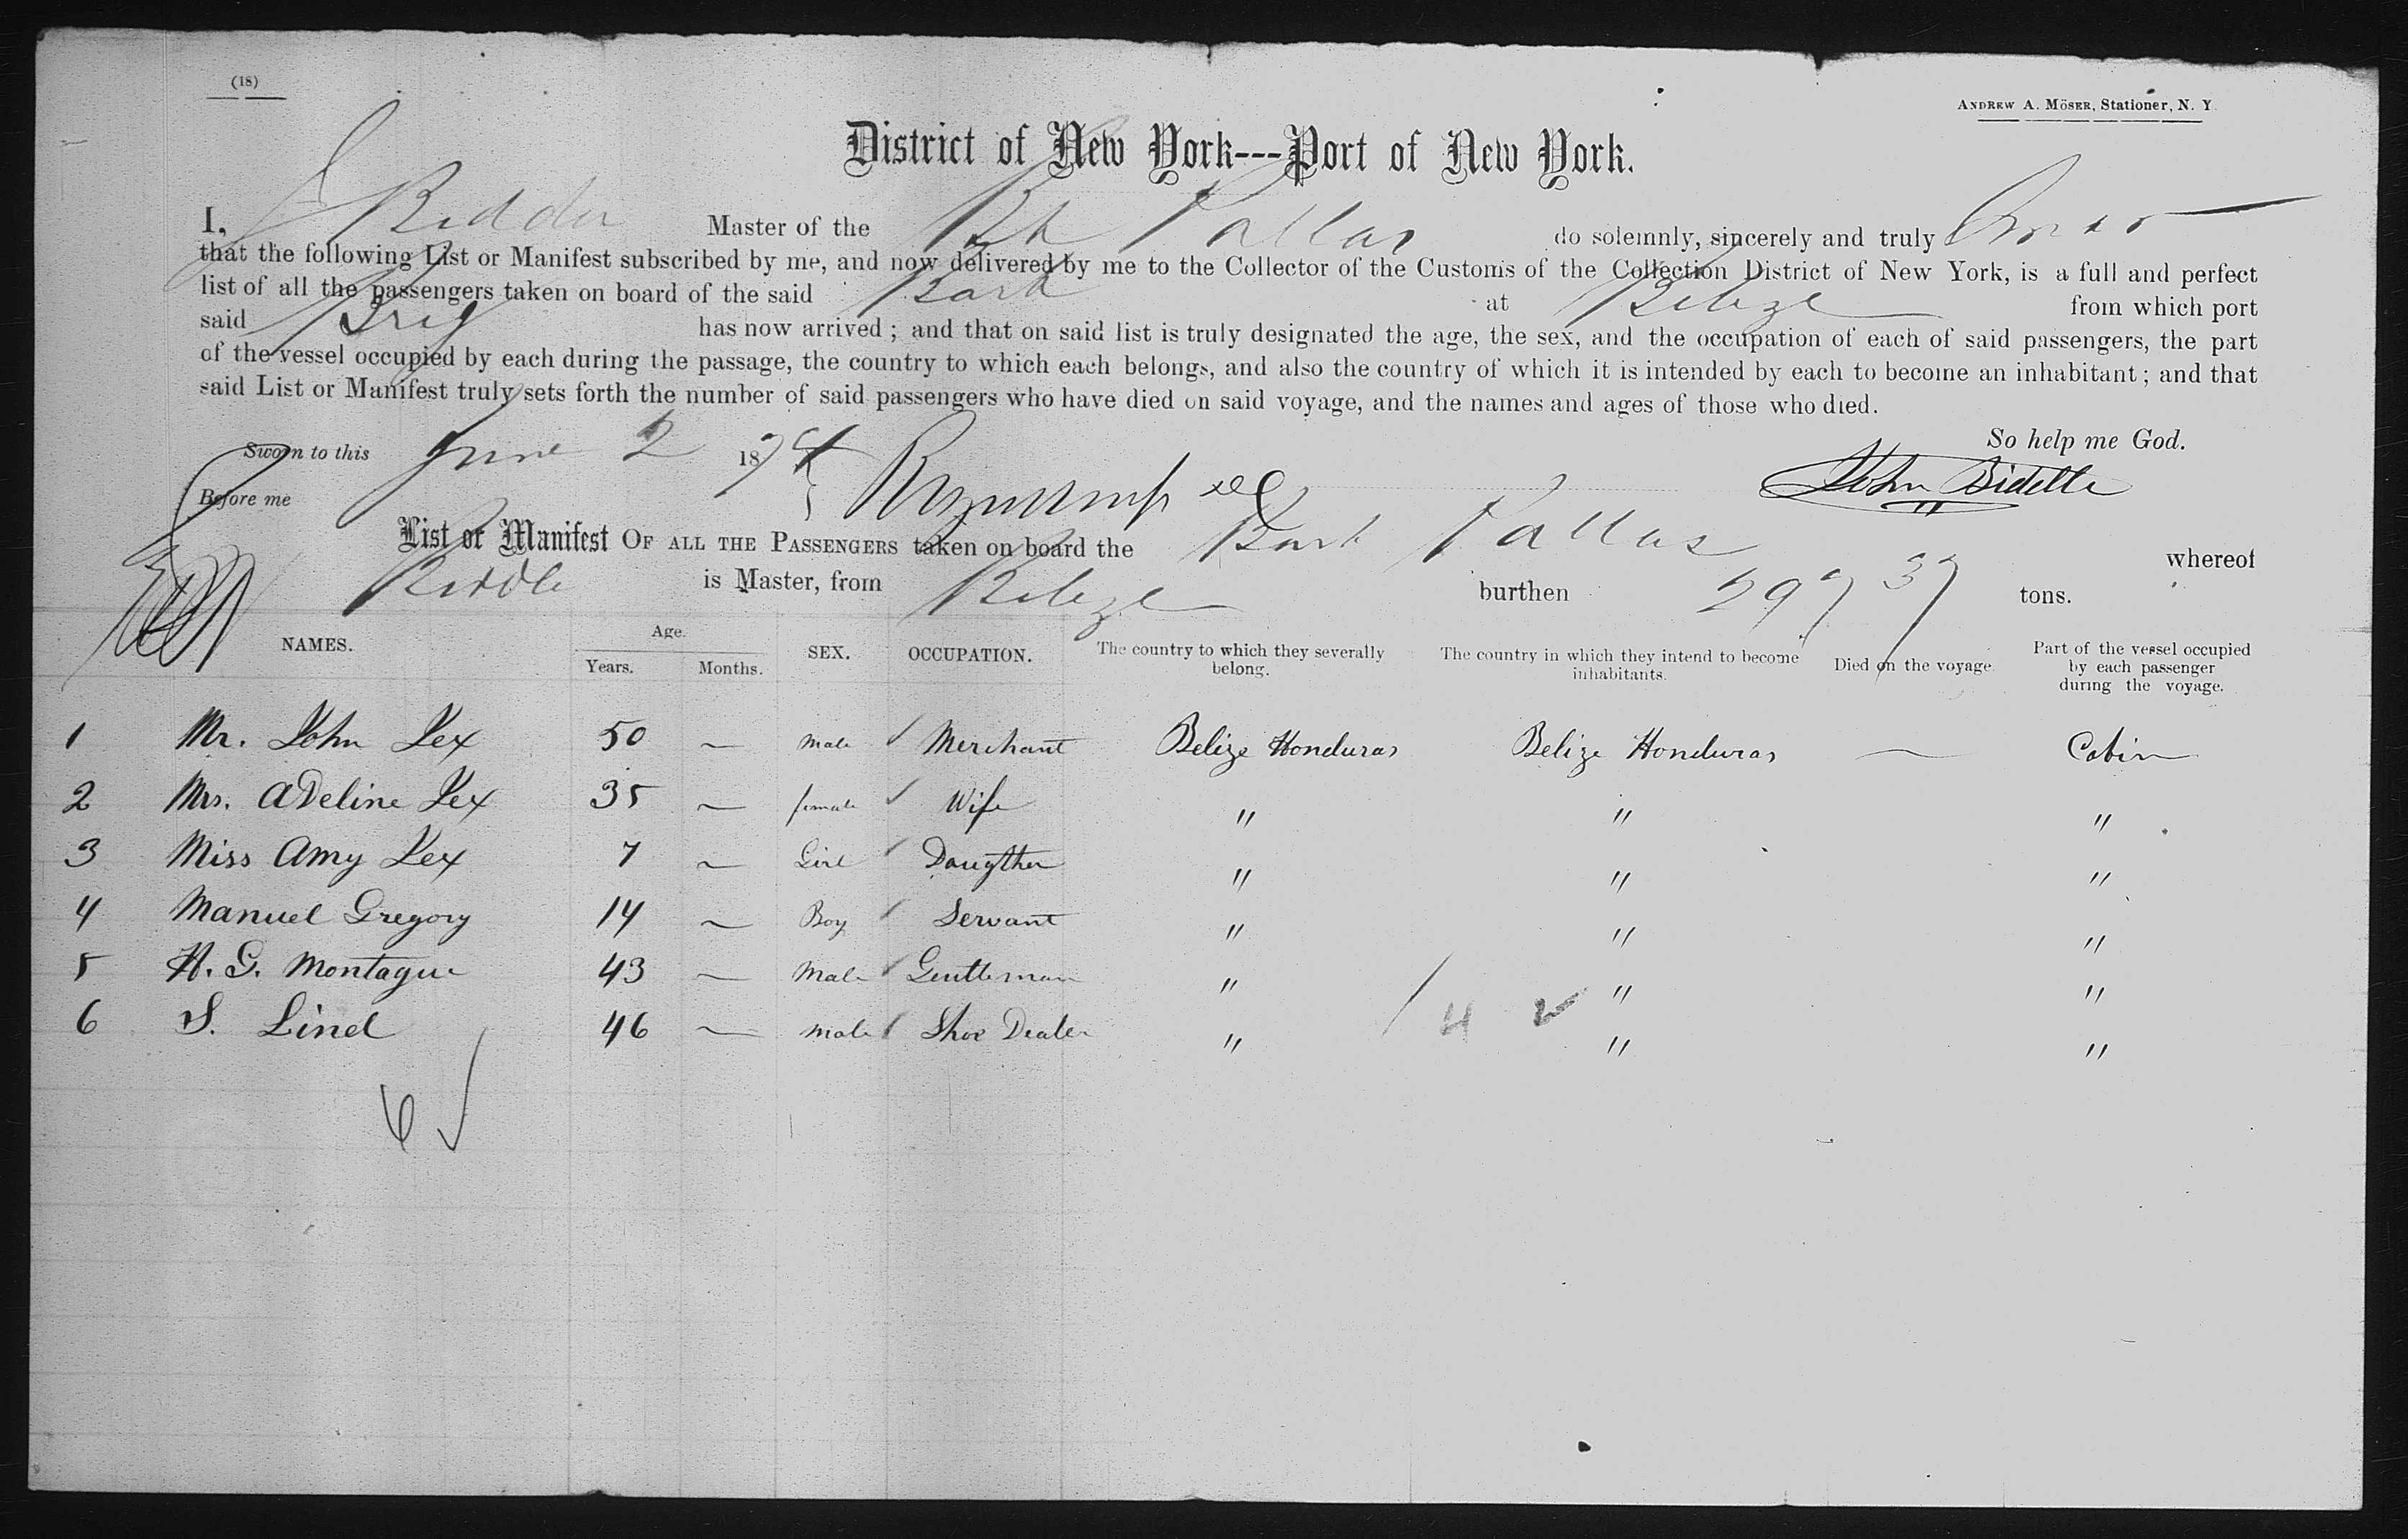 (18)
ANDREW A. MÖSER, Stationer, N. Y.
District of New York---Port of New York.
I, J Bidder Master of the Bk Pallas do solemnly, sincerely and truly
that the following List or Manifest subscribed by me, and now delivered by me to the Collector of the Customs of the Collection District of New York, is a full and perfect
list of all the passengers taken on board of the said Bark at Belize from which port
said Brig has now arrived ; and that on said list is truly designated the age, the sex, and the occupation of each of said passengers, the part
of the vessel occupied by each during the passage, the country to which each belongs, and also the country of which it is intended by each to become an inhabitant ; and that
said List or Manifest truly sets forth the number of said passengers who have died on said voyage, and the names and ages of those who died.
So help me God.
Sworn to this June 2 1874
Before me
John
List or Manifest OF ALL THE PASSENGERS taken on board the Bark Pallas whereof
is Master, from Belize burthen 297 37 tons.
NAMES. Age. Years. Months. SEX. OCCUPATION. The country to which they severally belong. The country in which they intend to become inhabitants. Died on the voyage. Part of the vessel occupied by each passenger during the voyage.
1 Mr. John Lex 50 — male ✓ Merchant Belize Honduras Belize Honduras — Cabin
2 Mrs. Adeline Lex 35 — female ✓ Wife " " "
3 Miss Amy Lex 7 — Girl ✓ Daugther " " "
4 Manuel Gregory 14 — Boy ✓ Servant " " "
5 H. G. Montague 43 — Male ✓ Gentleman " " "
6 S. Lind 46 — male ✓ Shoe Dealer " " "
6 ✓